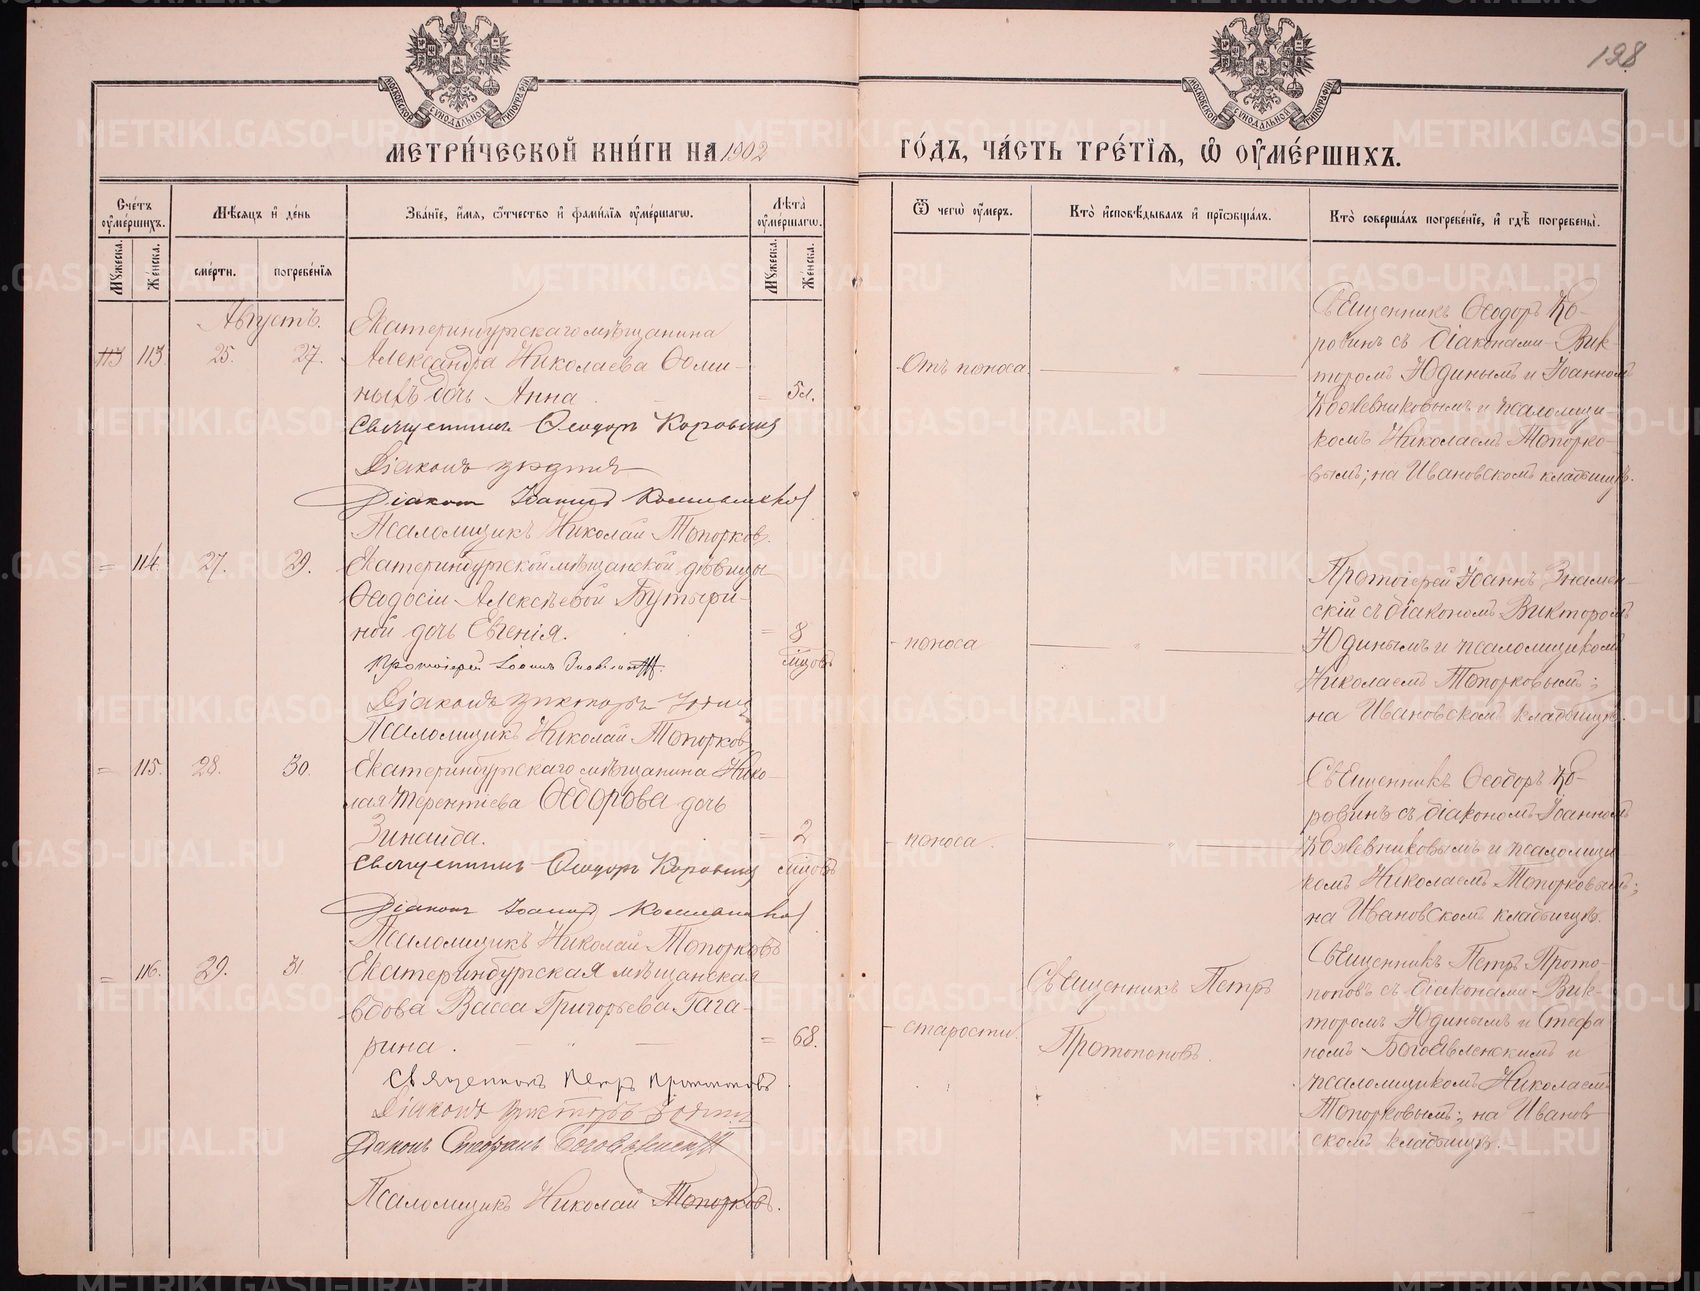 198
МОСКОВСКОЙ СѴНОДАЛЬНОЙ ТИПОГРАФІИ
МОСКОВСКОЙ СѴНОДАЛЬНОЙ ТИПОГРАФІИ
МЕТРИ́ЧЕСКОЙ КНИ́ГИ НА 1902
ГО́ДЪ, ЧА́СТЬ ТРЕ́ТІѦ, Ѡ҆ ОУ҆МЕ́РШИХЪ.
Сче́тъ оу҆ме́ршихъ.
Мѣ́сѧцъ и҆ де́нь
Зва́нїе, и҆́мѧ, ѻ҆́тчество и҆ фами́лїѧ оу҆ме́ршагѡ.
Лѣ́та оу҆ме́ршагѡ.
Ѿ чегѡ̀ оу҆́меръ.
Кто̀ и҆сповѣ́дывалъ и҆ прїѡбща́лъ.
Кто̀ соверша́лъ погребе́нїе, и҆ гдѣ̀ погребены̀.
Мꙋ́жеска.
Же́нска.
сме́рти.
погребе́нїѧ
Мꙋ́жеска.
Же́нска.
Августъ.
113 113 25. 27.
Екатеринбургскаго мѣщанина
Александра Николаева Ѳоми-
ныхъ дочь Анна = 5 л.
Священникъ Ѳеодоръ Коровинъ
Діаконъ Юдинъ
Діаконъ Іоаннъ Кожевниковъ
Псаломщикъ Николай Топорковъ.
Отъ поноса
Священникъ Ѳеодоръ Ко-
ровинъ съ діаконами Вик-
торомъ Юдинымъ и Іоанномъ
Кожевниковымъ и псаломщи-
комъ Николаемъ Топорко-
вымъ; на Ивановскомъ кладбищѣ.
= 114. 27. 29.
Екатеринбургской мѣщанской дѣвицы
Ѳеодосіи Алексѣевой Бутыри-
ной дочь Евгенія. = 8 мѣсяцовъ
Протоіерей Іоаннъ Знаменскій.
Діаконъ Викторъ Юдинъ
Псаломщикъ Николай Топорковъ
- поноса
Протоіерей Іоаннъ Знамен-
скій съ діакономъ Викторомъ
Юдинымъ и псаломщикомъ
Николаемъ Топорковымъ;
на Ивановскомъ кладбищѣ.
= 115. 28. 30.
Екатеринбургскаго мѣщанина Нико-
лая Терентіева Ѳедорова дочь
Зинаида. = 2 мѣсяцовъ
Священникъ Ѳеодоръ Коровинъ
Діаконъ Іоаннъ Кожевниковъ
Псаломщикъ Николай Топорковъ
- поноса.
Священникъ Ѳеодоръ Ко-
ровинъ съ діакономъ Іоанномъ
Кожевниковымъ и псаломщи-
комъ Николаемъ Топорковымъ;
на Ивановскомъ кладбищѣ.
= 116. 29. 31
Екатеринбургская мѣщанская
вдова Васса Григорьева Гага-
рина. = 68.
Священникъ Петръ Протопоповъ
Діаконъ Викторъ Юдинъ
Діаконъ Стефанъ Богоявленскій
Псаломщикъ Николай Топорковъ.
- старости.
Священникъ Петръ
Протопоповъ.
Священникъ Петръ Прото-
поповъ съ діаконами Вик-
торомъ Юдинымъ и Стефа
номъ Богоявленскимъ и
псаломщикомъ Николаемъ
Топорковымъ; на Иванов
скомъ кладбищѣ.
METRIKI.GASO-URAL.RU